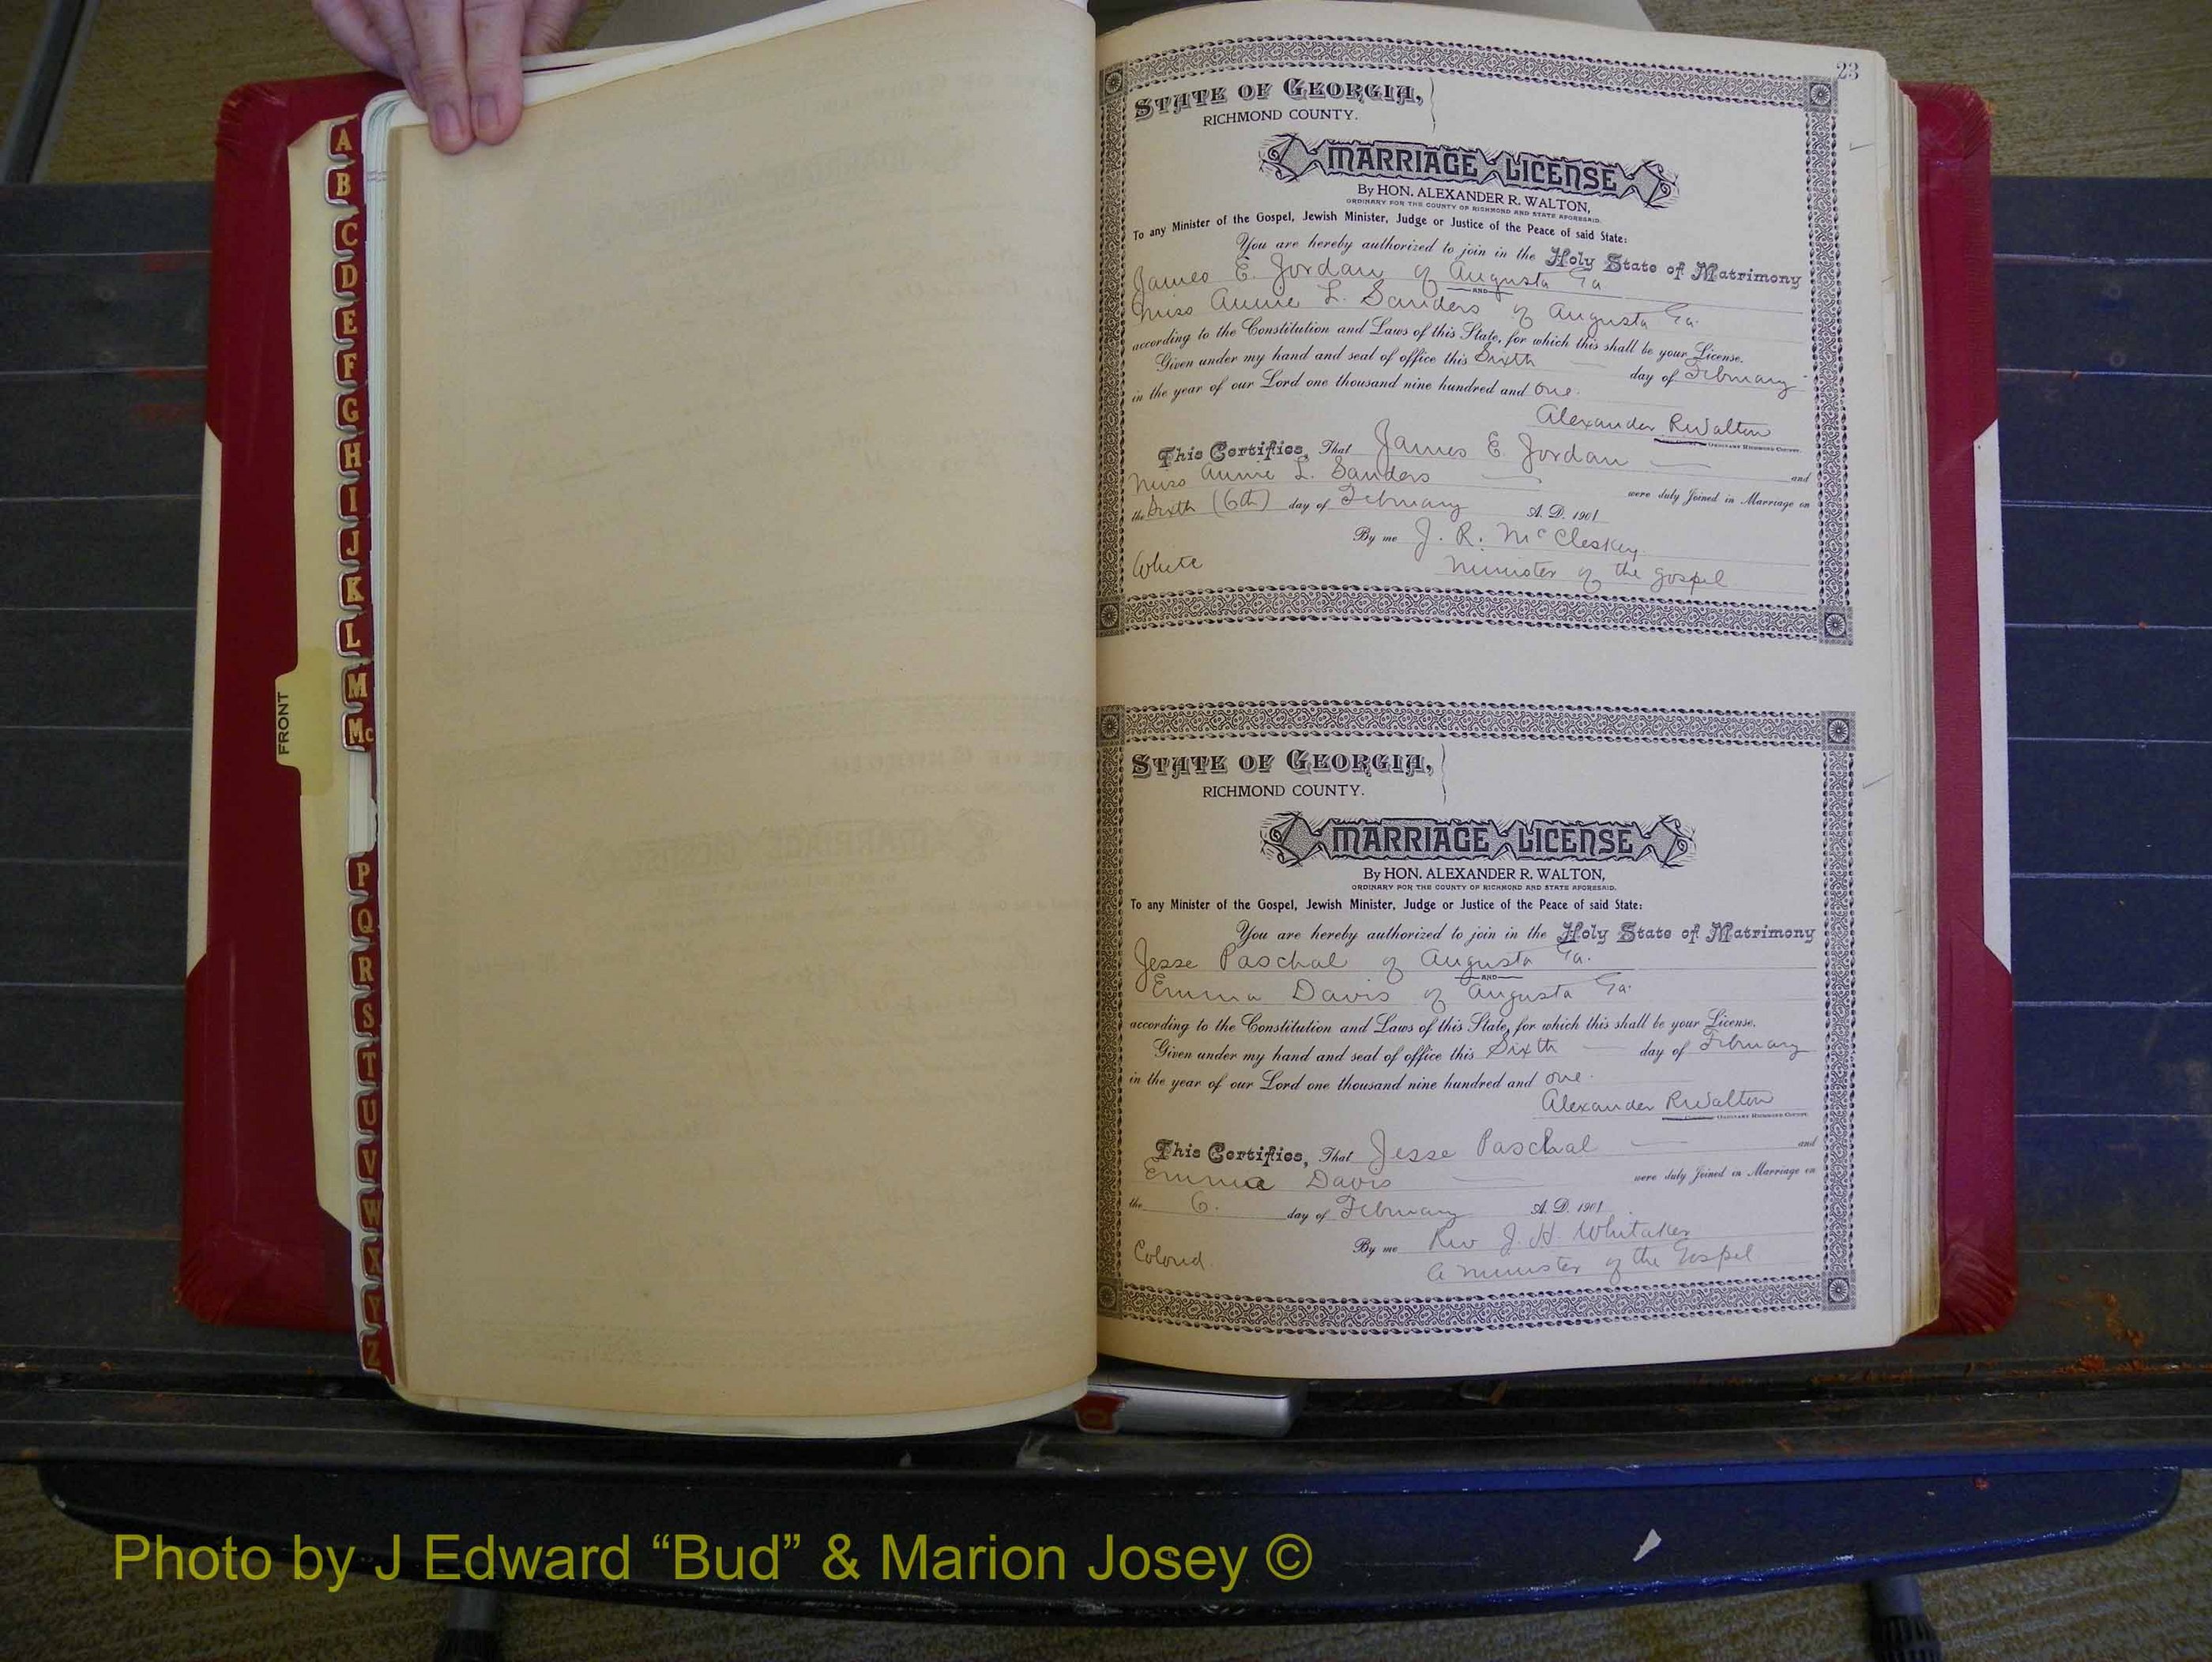 A
B
C
D
E
F
G
H
I
J
K
L
M
Mc
P
Q
R
S
T
U
V
W
X
Y
Z
FRONT
23
STATE OF GEORGIA,
RICHMOND COUNTY.
MARRIAGE LICENSE
By HON. ALEXANDER R. WALTON,
ORDINARY FOR THE COUNTY OF RICHMOND AND STATE AFORESAID.
To any Minister of the Gospel, Jewish Minister, Judge or Justice of the Peace of said State:
You are hereby authorized to join in the Holy State of Matrimony
James E. Jordan of Augusta Ga
AND
Miss Annie L. Sanders of Augusta Ga.
according to the Constitution and Laws of this State, for which this shall be your License.
Given under my hand and seal of office this Sixth day of February
in the year of our Lord one thousand nine hundred and one.
Alexander R Walton
ORDINARY RICHMOND COUNTY.
This Certifies, That James E Jordan and
Miss Annie L. Sanders were duly Joined in Marriage on
the Sixth (6th) day of February A. D. 1901
By me J. R. McCleskey
White Minister of the gospel
STATE OF GEORGIA,
RICHMOND COUNTY.
MARRIAGE LICENSE
By HON. ALEXANDER R. WALTON,
ORDINARY FOR THE COUNTY OF RICHMOND AND STATE AFORESAID.
To any Minister of the Gospel, Jewish Minister, Judge or Justice of the Peace of said State:
You are hereby authorized to join in the Holy State of Matrimony
Jesse Paschal of Augusta Ga.
AND
Emma Davis of Augusta Ga.
according to the Constitution and Laws of this State, for which this shall be your License.
Given under my hand and seal of office this Sixth day of February
in the year of our Lord one thousand nine hundred and one.
Alexander R Walton
ORDINARY RICHMOND COUNTY.
This Certifies, That Jesse Paschal and
Emma Davis were duly Joined in Marriage on
the 6. day of February A. D. 1901
By me Rev J. H. Whitaker
Colored. a minister of the Gospel
O
Photo by J Edward “Bud” & Marion Josey ©